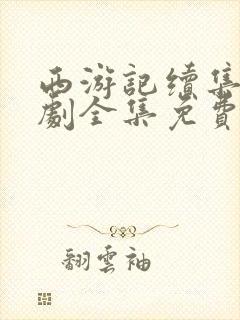 西游記續集
劇全集免費
翻雲袖